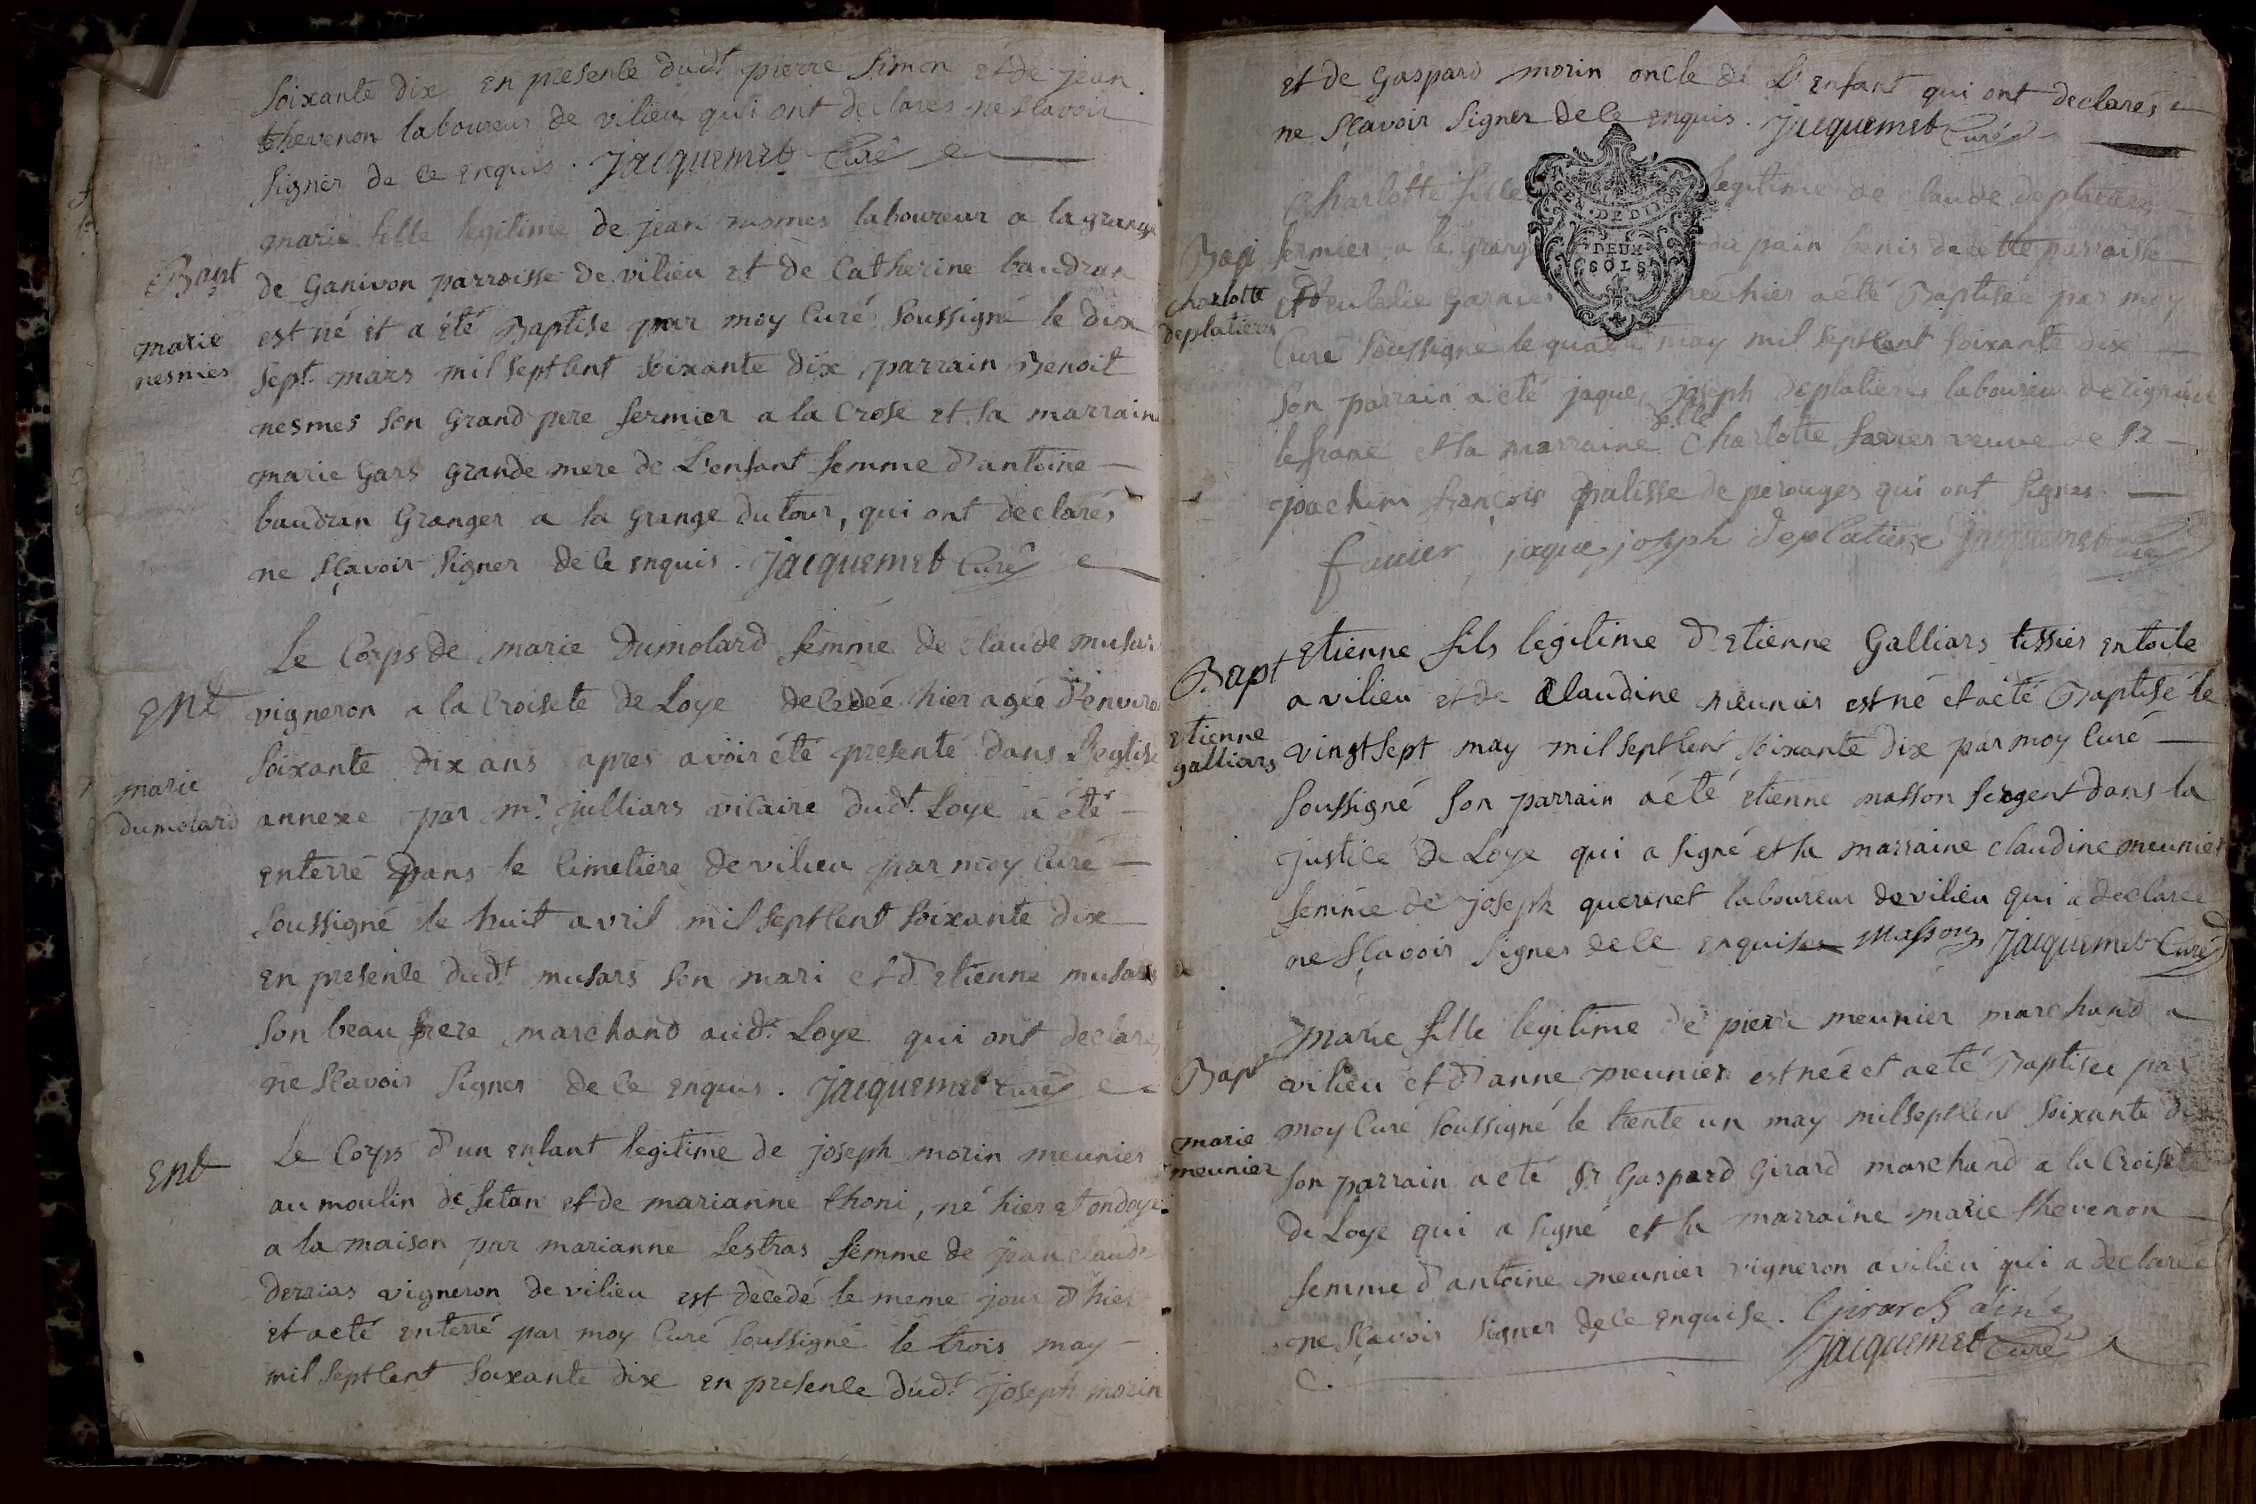 soixante dix en presence dudt pierre simon et de jean
thevenon laboureur de vilieu qui ont declarés ne sçavoir
signer de ce enquis. jacquemet Curé
Bapt
marie
nesmes
marie fille legitime de jean nesmes laboureur a la grange
de Ganivon parroisse de vilieu et de Catherine baudran
est né et a été Baptise par moy Curé soussigné le dix
sept mars mil sept cent soixante dix parrain Benoit
nesmes son Grand pere fermier a la Crose et sa marraine
marie Gars grande mere de L'enfant femme d'antoine
baudran Granger a la grange du tour, qui ont declarés
ne sçavoir signer de ce enquis. jacquemet Curé
Ent
marie
dumolard
Le Corps de marie Dumolard femme de claude musars
vigneron a la Croisete de Loye decedée hier agée d'enviro
soixante dix ans apres avoir été presenté dans L'eglise
annexe par mr. julliars vicaire dudt. Loye a été
enterré Dans le Cimetiere de vilieu par moy Curé
soussigné le huit avril mil sept cent soixante dix
en presence dudt. musars son mari et d'etienne musars
son beau frere marchand audt. Loye qui ont declarés
ne sçavoir signer de ce enquis. jacquemet Curé
Ent
Le Corps d'un enfant legitime de joseph morin meunier
au moulin de setan et de marianne thoni, né hier et ondoye
a la maison par marianne sestras femme de jean claude
derrias vigneron de vilieu est decedé le meme jour d'hier
et a eté enterré par moy Curé soussigné le trois may
mil sept cent soixante dix en presence dudt. joseph morin
et de Gaspard morin oncle de L'enfant qui ont declarés
ne sçavoir signer de ce enquis. jacquemet Curé
DEUX
SOLS
Bapt
charlotte
deplatieres
Charlotte fille legitime de claude deplatieres
fermier a la Grange du pain benis de cette parroisse
et d'eulalie Garnier née hier a été Baptisée par moy
Curé soussigné le quatre may mil sept cent soixante dix
son parrain a eté jaque joseph deplatieres laboureur de rignieu
le franc et sa marraine delle Charlotte favier veuve de sr
joachim françois palisse de perouges qui ont signes
favier jaque joseph deplatiere jacquemet Curé
Bapt
etienne
galliars
etienne fils legitime d'etienne Galliars tissier en toile
a vilieu et de Claudine meunier est né et a été Baptisé le
vingt sept may mil sept cent soixante dix par moy Curé
soussigné son parrain a été etienne masson sergent dans la
justice de Loye qui a signé et sa marraine claudine meunier
femme de joseph querenet laboureur de vilieu qui a declarée
ne sçavoir signer de ce enquise Masson jacquemet Curé
Bapt
marie
meunier
marie fille legitime de pierre meunier marchand a
vilieu et d'anne meunier est née et a eté Baptisée par
moy Curé soussigné le trente un may mil sept cent soixante dix
son parrain a eté sr Gaspard Girard marchand a la Croisete
de Loye qui a signé et sa marraine marie thevenon
femme d'antoine meunier vigneron a vilieu qui a declarée
ne sçavoir signer de ce enquise. Girard ainé
jacquemet Curé